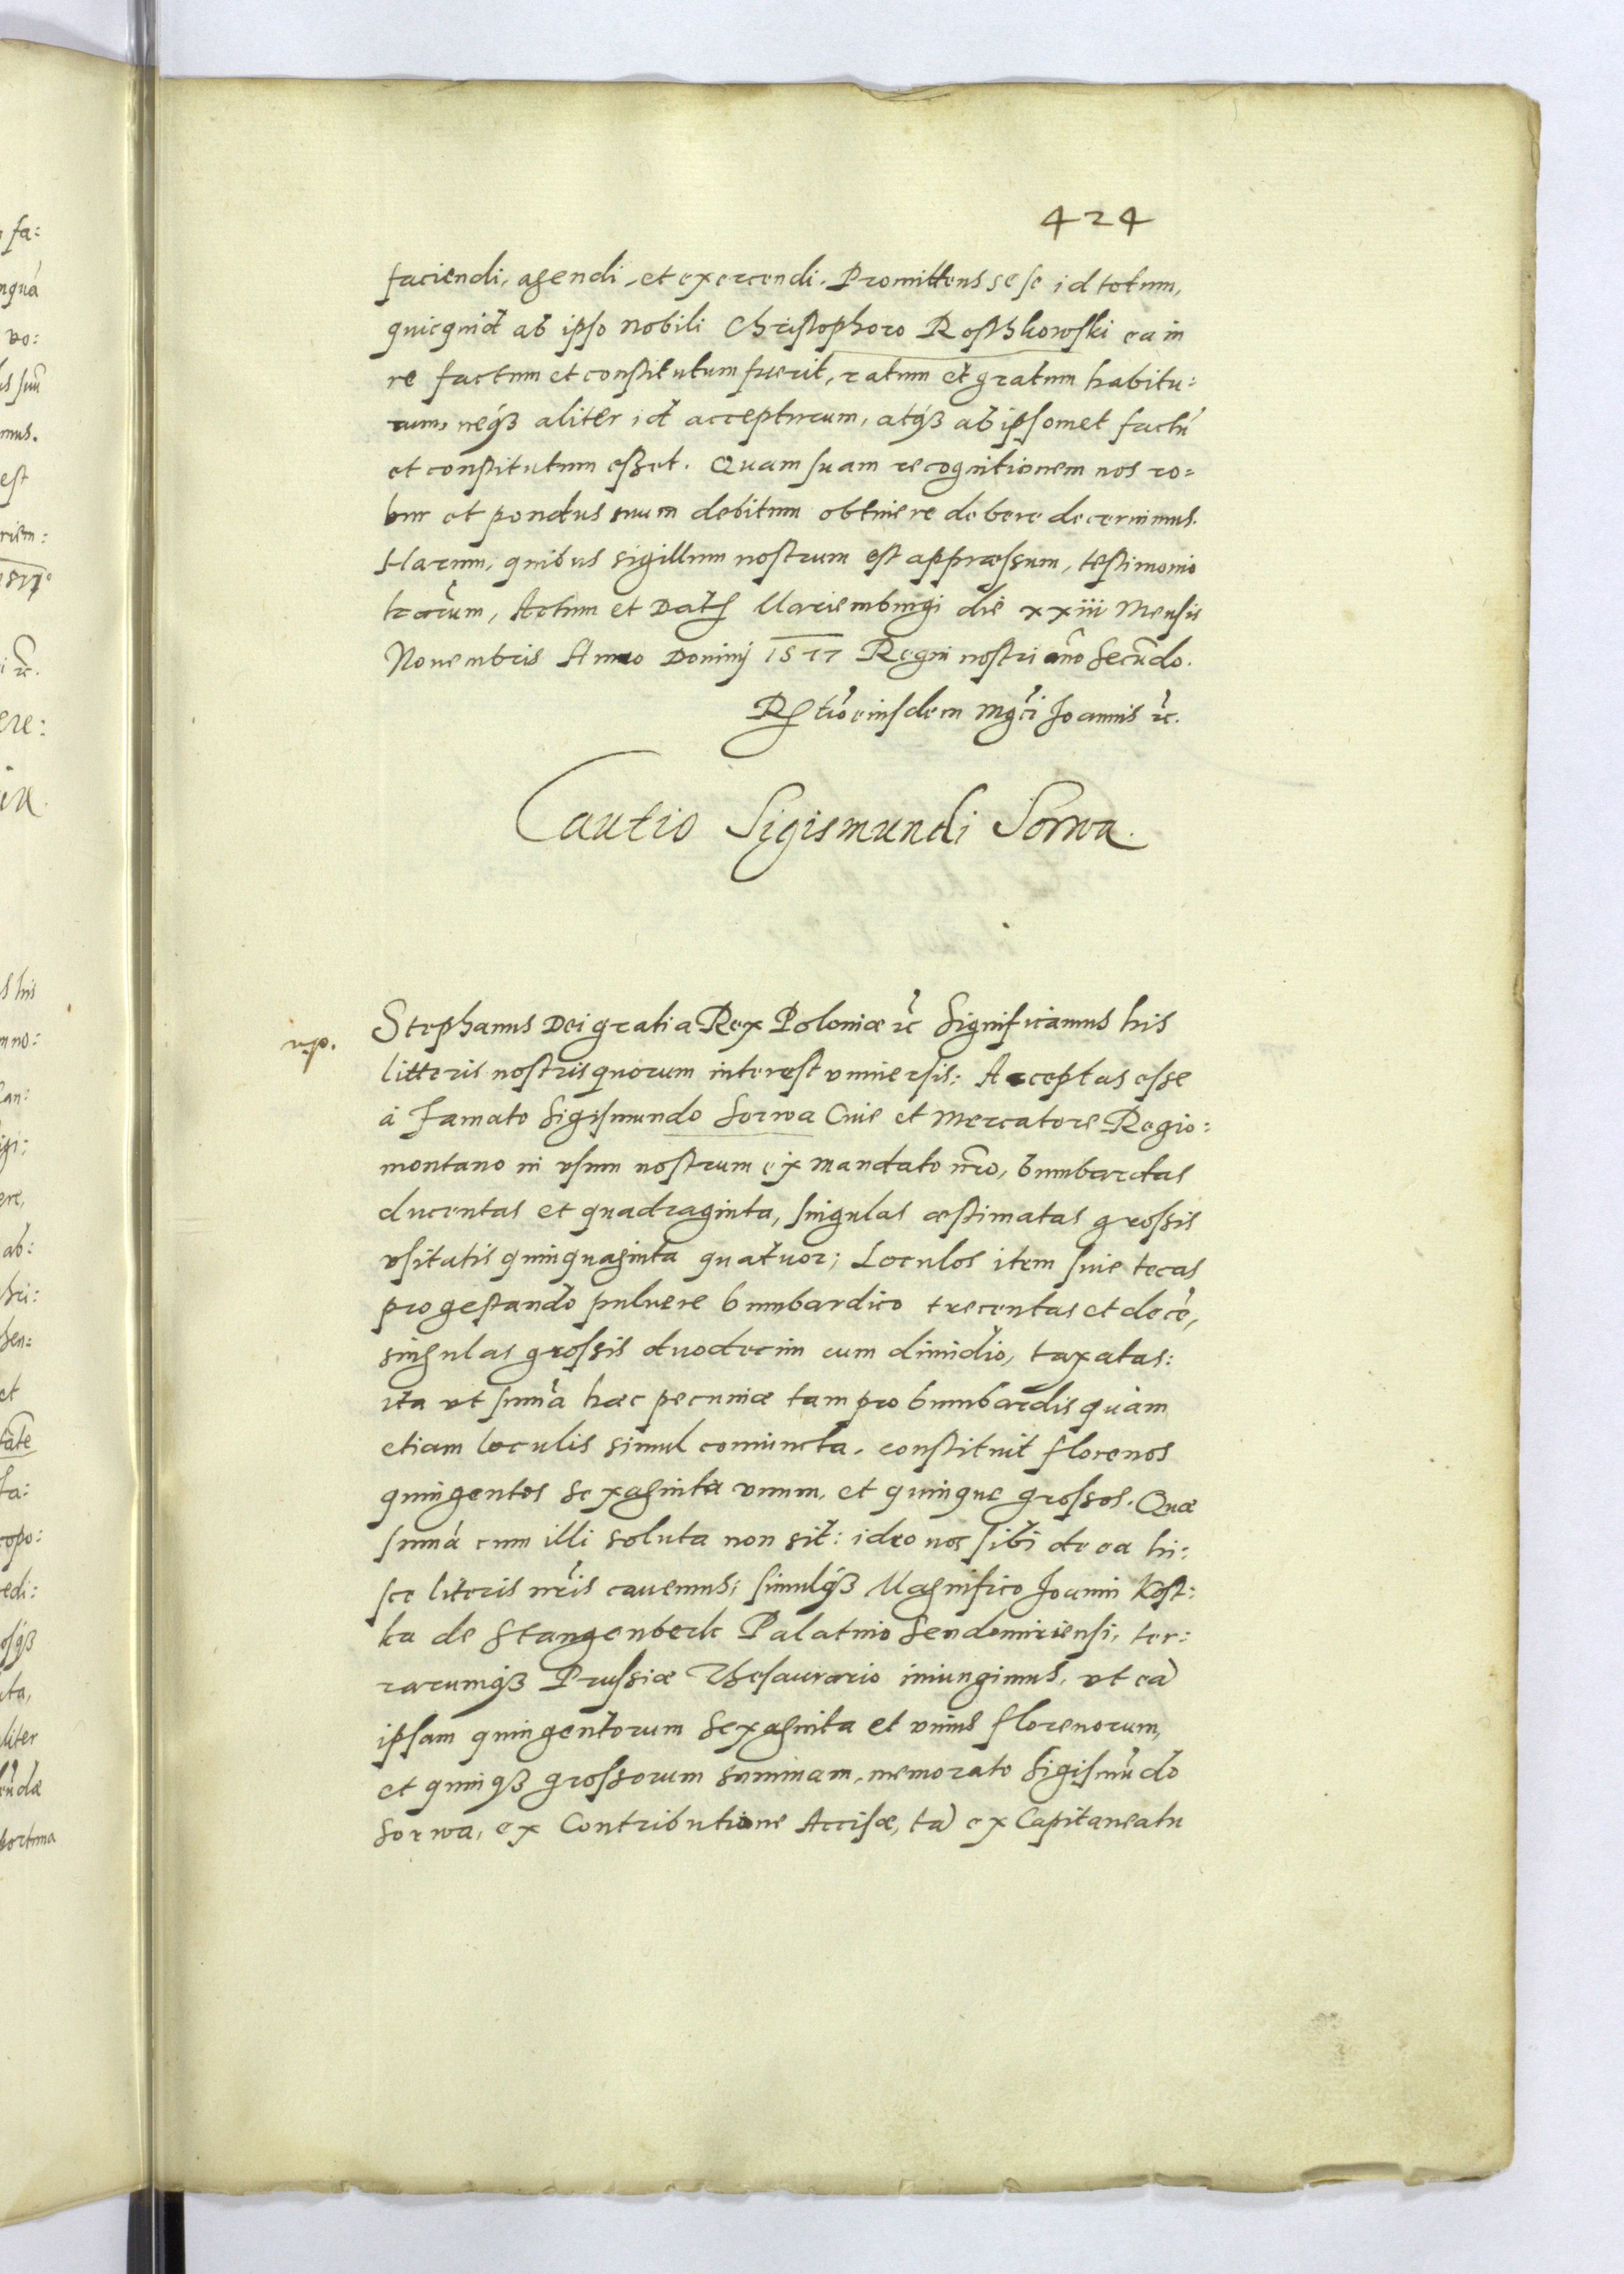 424
faciendi, agendi, et exercendi. Promittens sese id totum,
quicquid ab ipso Nobili Christophoro Rosthkowski ea in
re factum et constitutum fuerit, ratum et gratum habitu:
rum, neqȝ aliter id accepturum, atqȝ ab ipsomet factũ
et constitutum esset. Quam suam recognitionem nos ro=
bur et pondus suum debitum obtinere debere decernimus.
Harum, quibus sigillum nostrum est appræssum, testimonio
lrarum, Actum et Dat Mariemburgi die xxiii Mensis
Novembris Anno Dominj 1577 Regni nostri año Secũdo.
Rtio eiusdem Mgci Joannis rc.
Cautio Sigismundi Sorwa.
np.
Stephanus Dei gratia Rex Poloniæ rc Significamus his
litteris nostris quorum interest vniuersis: Acceptas esse
à Famato Sigismundo Sorwa Ciue et Mercatore Regio:
montano in vsum nostrum ex mandato nro, bumbardas
ducentas et quadraginta, singulas æstimatas grossis
vsitatis quinquaginta quatuor; Loculos item siue tecas
pro gestando puluere bumbardico trecentas et decẽ,
singulas grossis duodecim cum dimidio, taxatas:
ita vt summa hæc pecuniæ tam pro bumbardis quàm
etiam loculis simul coniuncta, constituit florenos
quingentos sexaginta vnum, et quinque grossos. Quæ
sum̃a cum illi soluta non sit: ideo nos sibi de ea hi:
sce literis nr̃is cauemus; simulqȝ Magnifico Joanni Kost:
ka de Stangenberk Palatino Sendomiriensi, ter:
rarumqȝ Prussiæ Thesaurario iniungimus, vt eã
ipsam quingentorum sexaginta et vnius florenorum,
et quinqȝ grossorum summam, memorato Sigismũdo
Sorwa, ex Contributione Accisæ, tã ex Capitaneatu